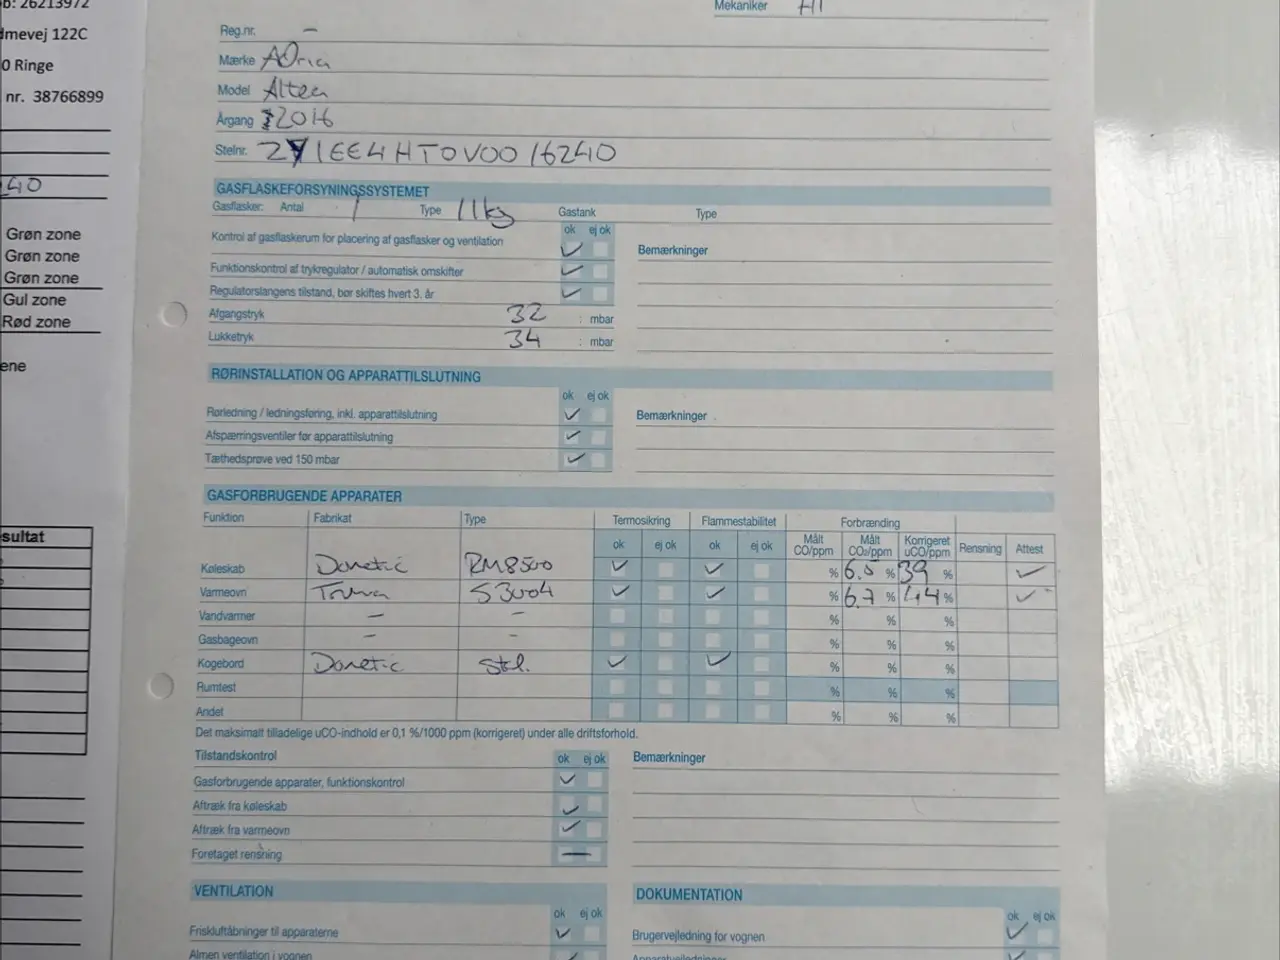 26213972
mevej 122C
0 Ringe
nr. 38766899
40
Grøn zone
Grøn zone
Grøn zone
Gul zone
Rød zone
ene
sultat
Mekaniker
Reg.nr. –
Mærke Adria
Model Altea
Årgang 2016
Stelnr.
GASFLASKEFORSYNINGSSYSTEMET
Gasflasker: Antal 1 Type 11kg Gastank Type
ok ej ok
Kontrol af gasflaskerum for placering af gasflasker og ventilation Bemærkninger
Funktionskontrol af trykregulator / automatisk omskifter
Regulatorslangens tilstand, bør skiftes hvert 3. år
Afgangstryk 32 : mbar
Lukketryk 34 : mbar
RØRINSTALLATION OG APPARATTILSLUTNING
ok ej ok
Rørledning / ledningsføring, inkl. apparattilslutning Bemærkninger
Afspærringsventiler før apparattilslutning
Tæthedsprøve ved 150 mbar
GASFORBRUGENDE APPARATER
Funktion Fabrikat Type Termosikring Flammestabilitet Forbrænding
ok ej ok ok ej ok Målt CO/ppm Målt CO₂/ppm Korrigeret uCO/ppm Rensning Attest
Køleskab Dometic RM8500 % 6.5 % 39 %
Varmeovn Truma S3004 % 6.7 % 44 %
Vandvarmer – – % % %
Gasbageovn – – % % %
Kogebord Dometic % % %
Rumtest % % %
Andet % % %
Det maksimalt tilladelige uCO-indhold er 0,1 %/1000 ppm (korrigeret) under alle driftsforhold.
Tilstandskontrol ok ej ok Bemærkninger
Gasforbrugende apparater, funktionskontrol
Aftræk fra køleskab
Aftræk fra varmeovn
Foretaget rensning –
VENTILATION DOKUMENTATION
ok ej ok ok ej ok
Friskluftåbninger til apparaterne Brugervejledning for vognen
Almen ventilation i vognen